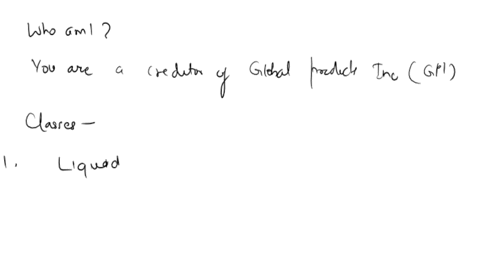 Who am I?
You are a creditor of Global products Inc (GPI)
Classes —
1. Liquid